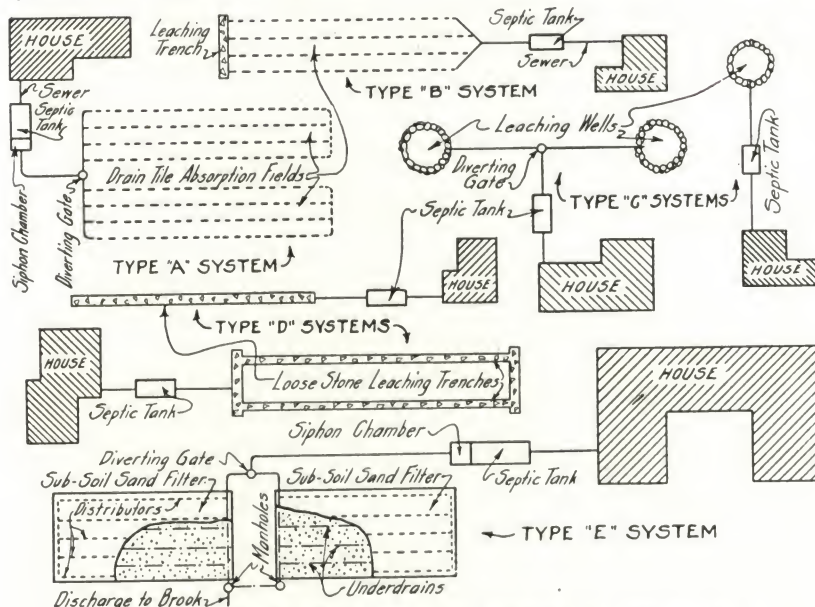 HOUSE
Sewer
Septic
Tank
Siphon Chamber
Diverting Gate
Drain Tile Absorption Fields
TYPE "A" SYSTEM
Leaching
Trench
Septic Tank
Sewer
HOUSE
TYPE "B" SYSTEM
Leaching Wells
Diverting
Gate
Septic Tank
TYPE "C" SYSTEMS
Septic Tank
HOUSE
HOUSE
HOUSE
TYPE "D" SYSTEMS
HOUSE
Septic Tank
Loose Stone Leaching Trenches
HOUSE
Siphon Chamber
Septic Tank
Diverting Gate
Sub-Soil Sand Filter
Sub-Soil Sand Filter
Distributors
Manholes
TYPE "E" SYSTEM
Underdrains
Discharge to Brook